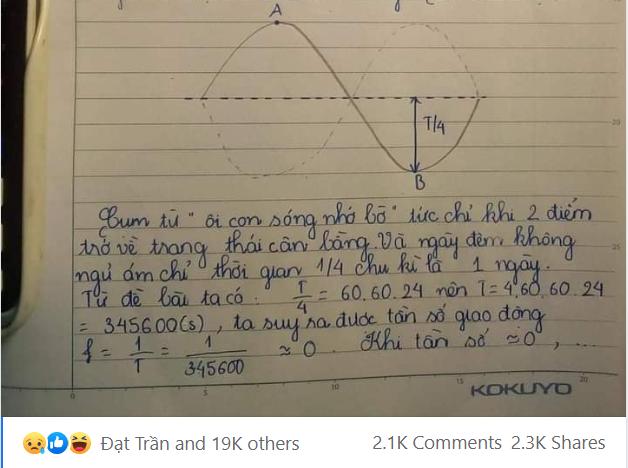 A
T/4
B
Cụm từ "ôi con sóng nhớ bờ" tức chỉ khi 2 điểm
trở về trạng thái cân bằng. Và ngày đêm không
ngủ ám chỉ thời gian 1/4 chu kì là 1 ngày.
Từ đề bài ta có. T/4 = 60.60.24 nên T = 4.60.60.24
= 345600(s), ta suy sa được tần số giao động
f = 1/T = 1/345600 ≈ 0. Khi tần số ≈ 0, ....
0 5 10 15 20
KOKUYO
Đạt Trần and 19K others 2.1K Comments 2.3K Shares